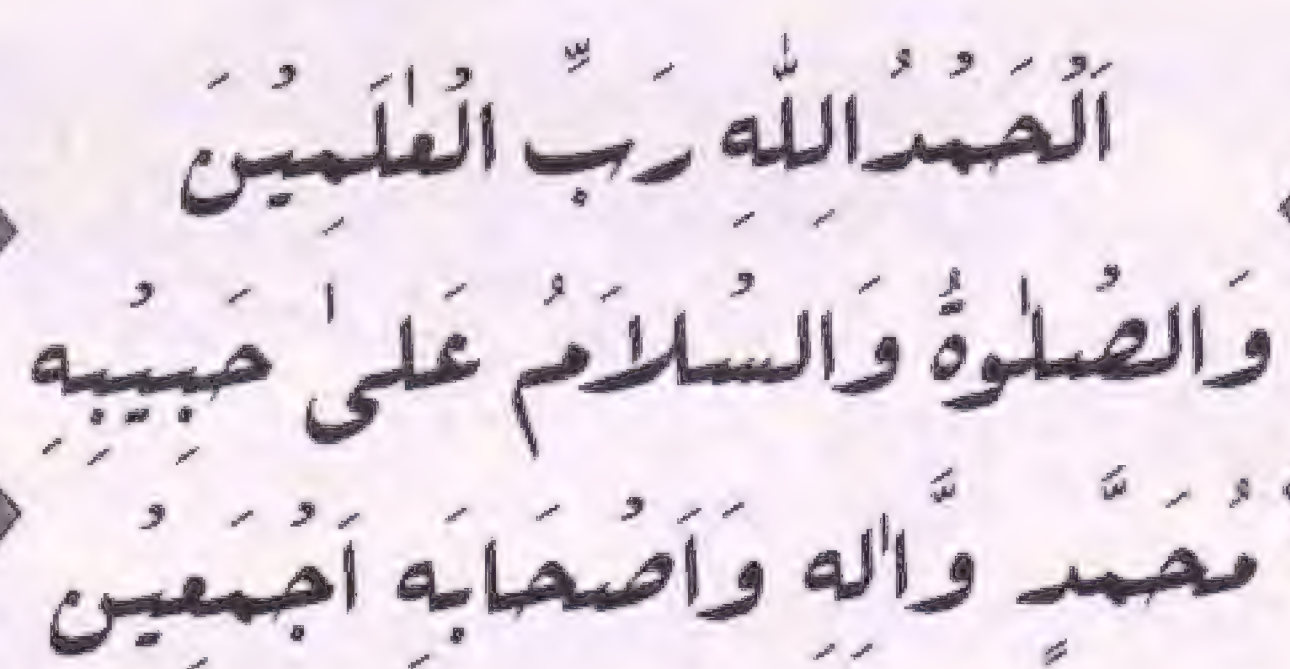 اَلْحَمْدُ اللّٰهِ رَبِّ الْعٰلَمِيْنَ
وَالصْلٰوةُ وَالسْلَامُ عَلىٰ حَبِيْبِهِ
مُحَمَّدٍ وَّاٰلِهِ وَاَصْحَابَهِ اَجْمَعِيْن